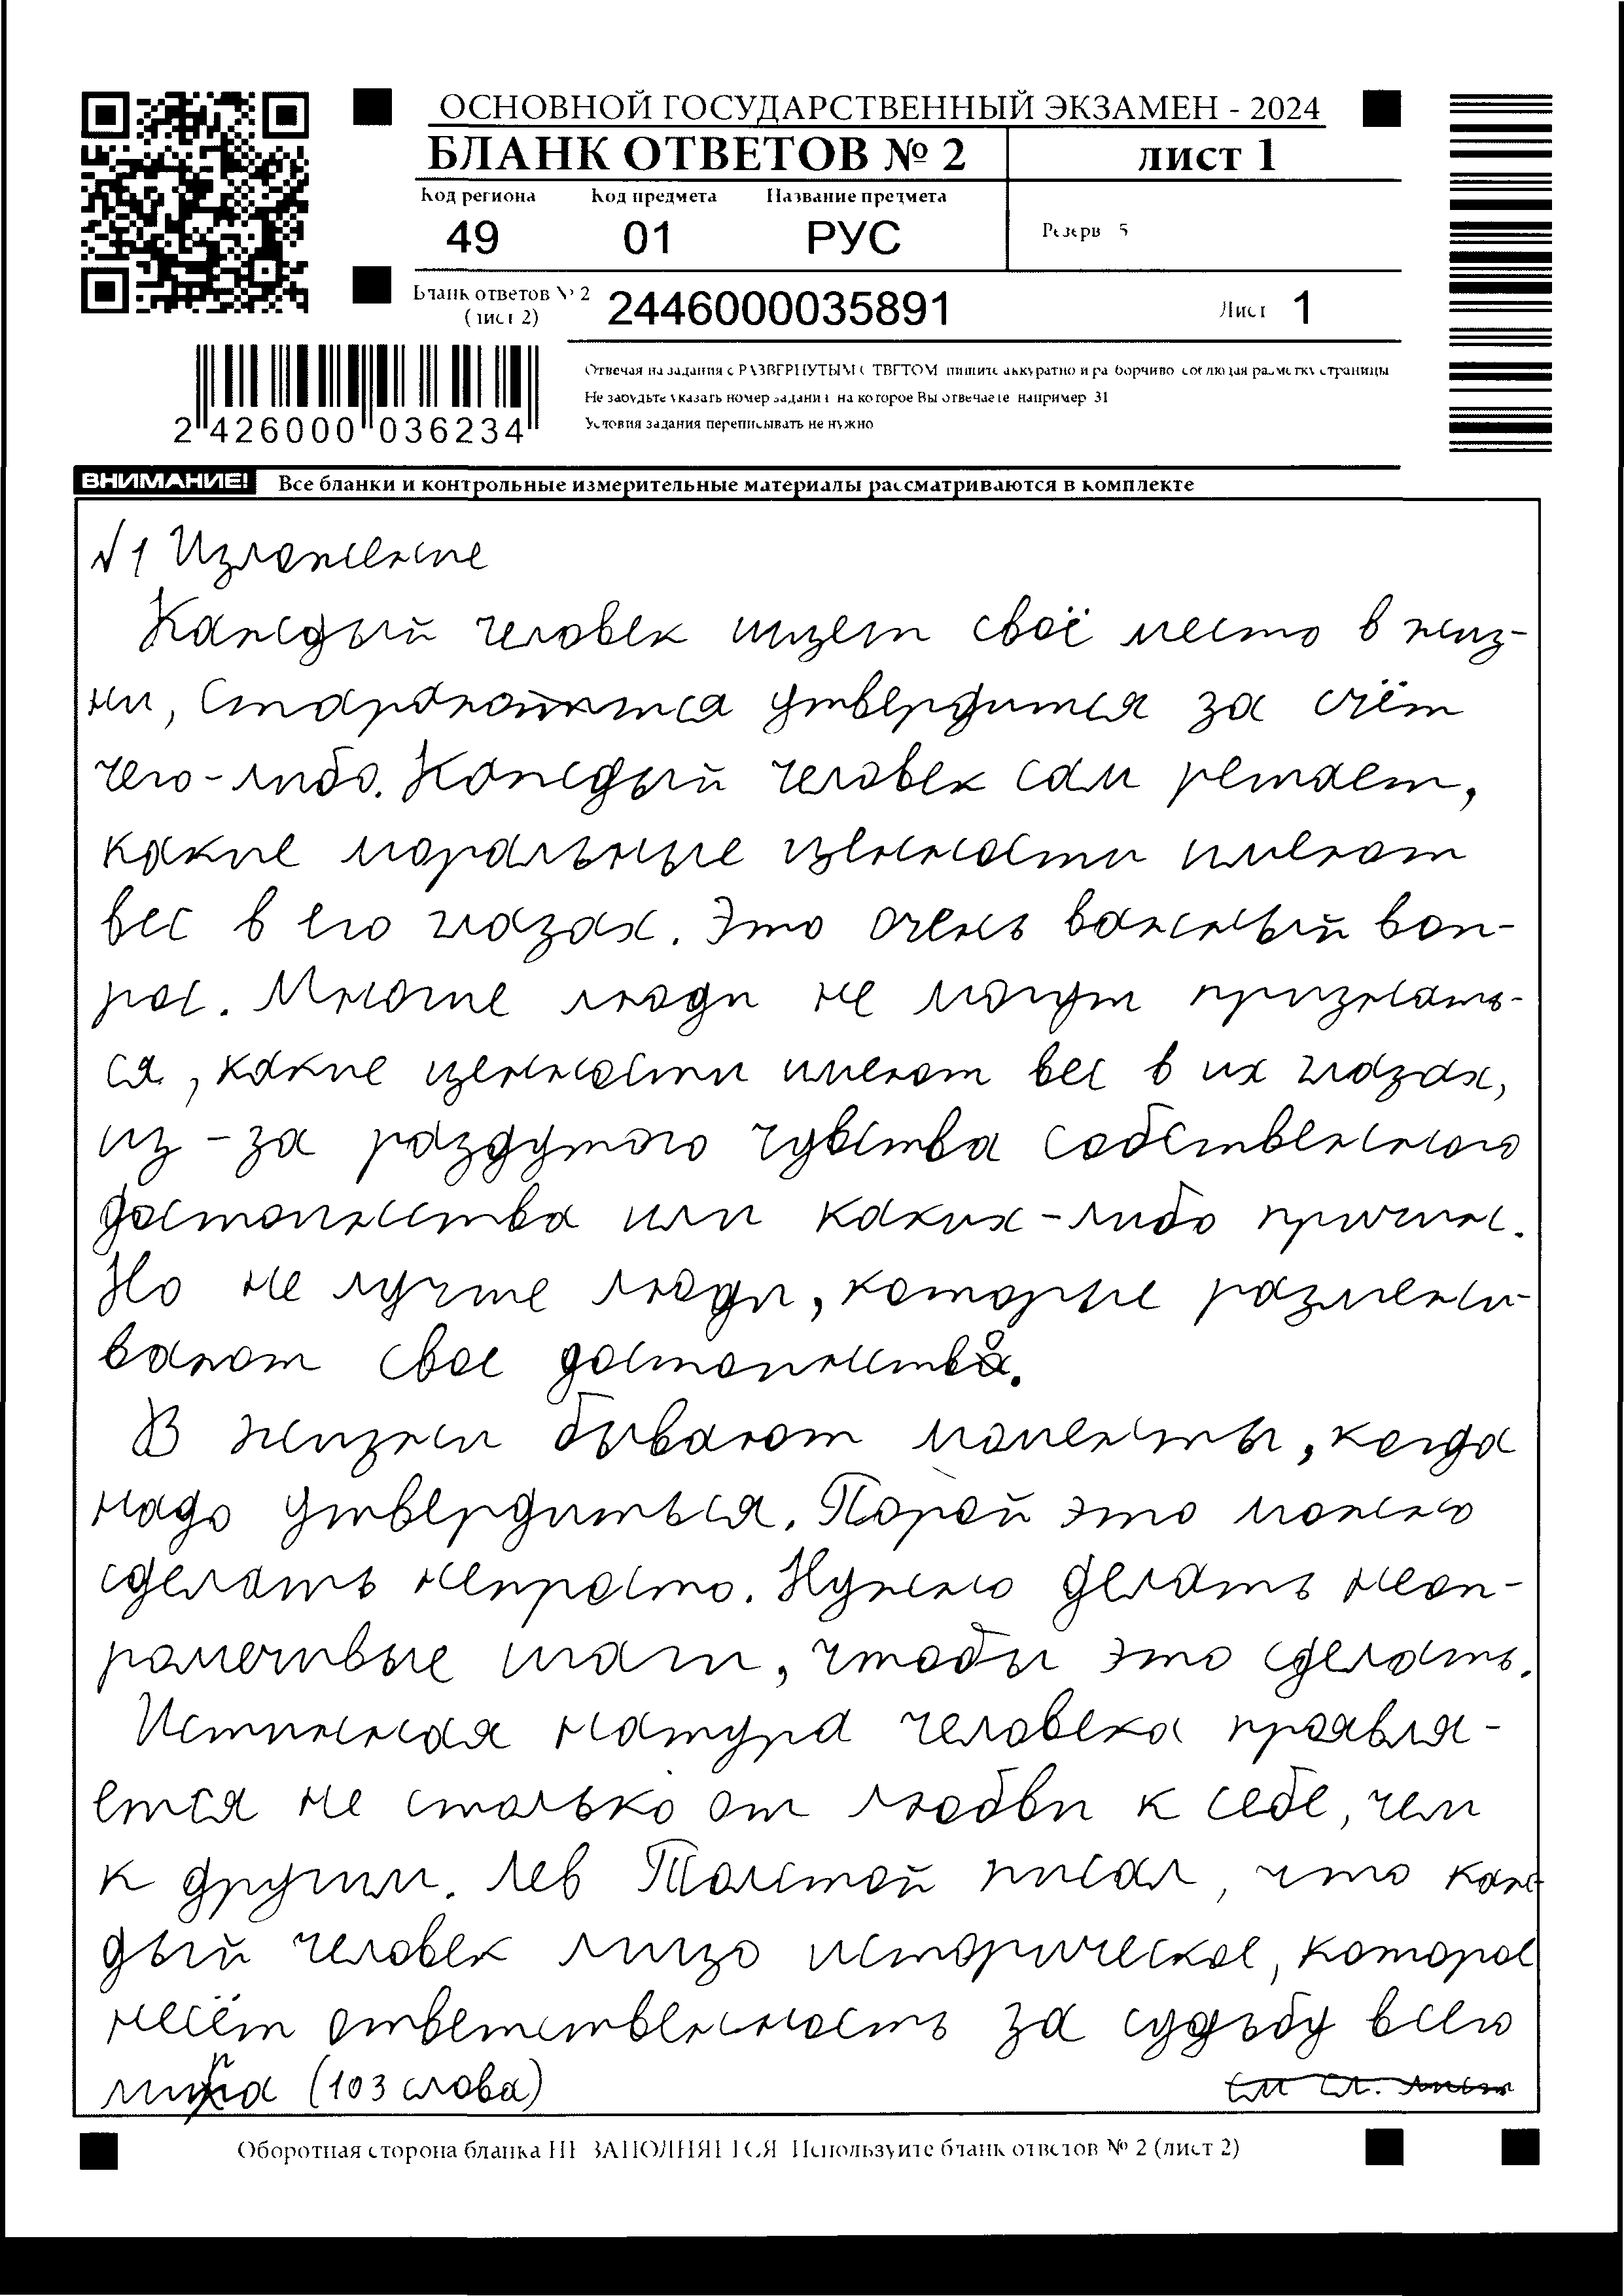 ОСНОВНОЙ ГОСУДАРСТВЕННЫЙ ЭКЗАМЕН - 2024
БЛАНК ОТВЕТОВ № 2 лист 1
Код региона Код предмета Название предмета
49 01 РУС Резерв 5
Бланк ответов № 2 (лист 2) 2446000035891 Лист 1
Отвечая на задания с РАЗВЕРНУТЫМ ОТВЕТОМ пишите аккуратно и разборчиво соблюдая разметку страницы
Не забудьте указать номер задания на которое Вы отвечаете например 31
Условия задания переписывать не нужно
2 426000 036234
ВНИМАНИЕ! Все бланки и контрольные измерительные материалы рассматриваются в комплекте
№1 Изложение
Каждый человек ищет своё место в жиз-
ни, утвердится за счёт
чего-либо. Каждый человек сам решает,
какие моральные ценности имеют
вес в его глазах. Это очень важный воп-
рос. Многие люди не могут признать-
ся, какие ценности имеют вес в их глазах,
из-за раздутого чувства собственного
достоинства или каких-либо причин.
Но не лучше люди, которые размени-
вают свое достоинства.
В жизни бывают моменты, когда
надо утвердиться. Порой это можно
сделать непросто. Нужно делать неоп-
рометвые шаги, чтобы это сделать.
Истинная натура человека проявля-
ется не столько от любви к себе, чем
к другим. Лев Толстой писал, что каж
дый человек лицо историческое, которое
несёт ответственность за судьбу всего
мира (103 слова)
Оборотная сторона бланка НЕ ЗАПОЛНЯЕТСЯ Используйте бланк ответов № 2 (лист 2)